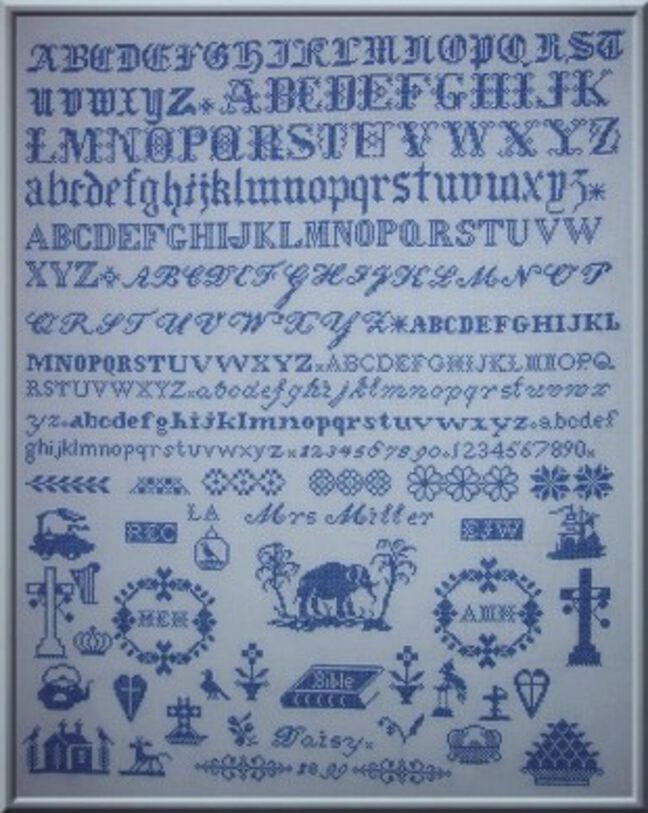 ABCDEFGHIJKLMNOPQRST
uvwxyz*ABCDEFGHIJK
LMNOPQRSTUVWXYZ
abcdefghijklmnopqrstuvwxyz*
ABCDEFGHIJKLMNOPQRSTUVW
XYZ*ABCDEFGHIJKLMNOP
QRSTUVWXYZ*ABCDEFGHIJKL
MNOPQRSTUVWXYZ×ABCDEFGHIJKLMNOPQ
RSTUVWXYZ×abcdefghijklmnopqrstuvwx
yz×abcdefghijklmnopqrstuvwxyz×abcdef
ghijklmnopqrstuvwxyz×1234567890×1234567890×
LA Mrs Miller
REC
HCH AMH
Bible
Daisy×